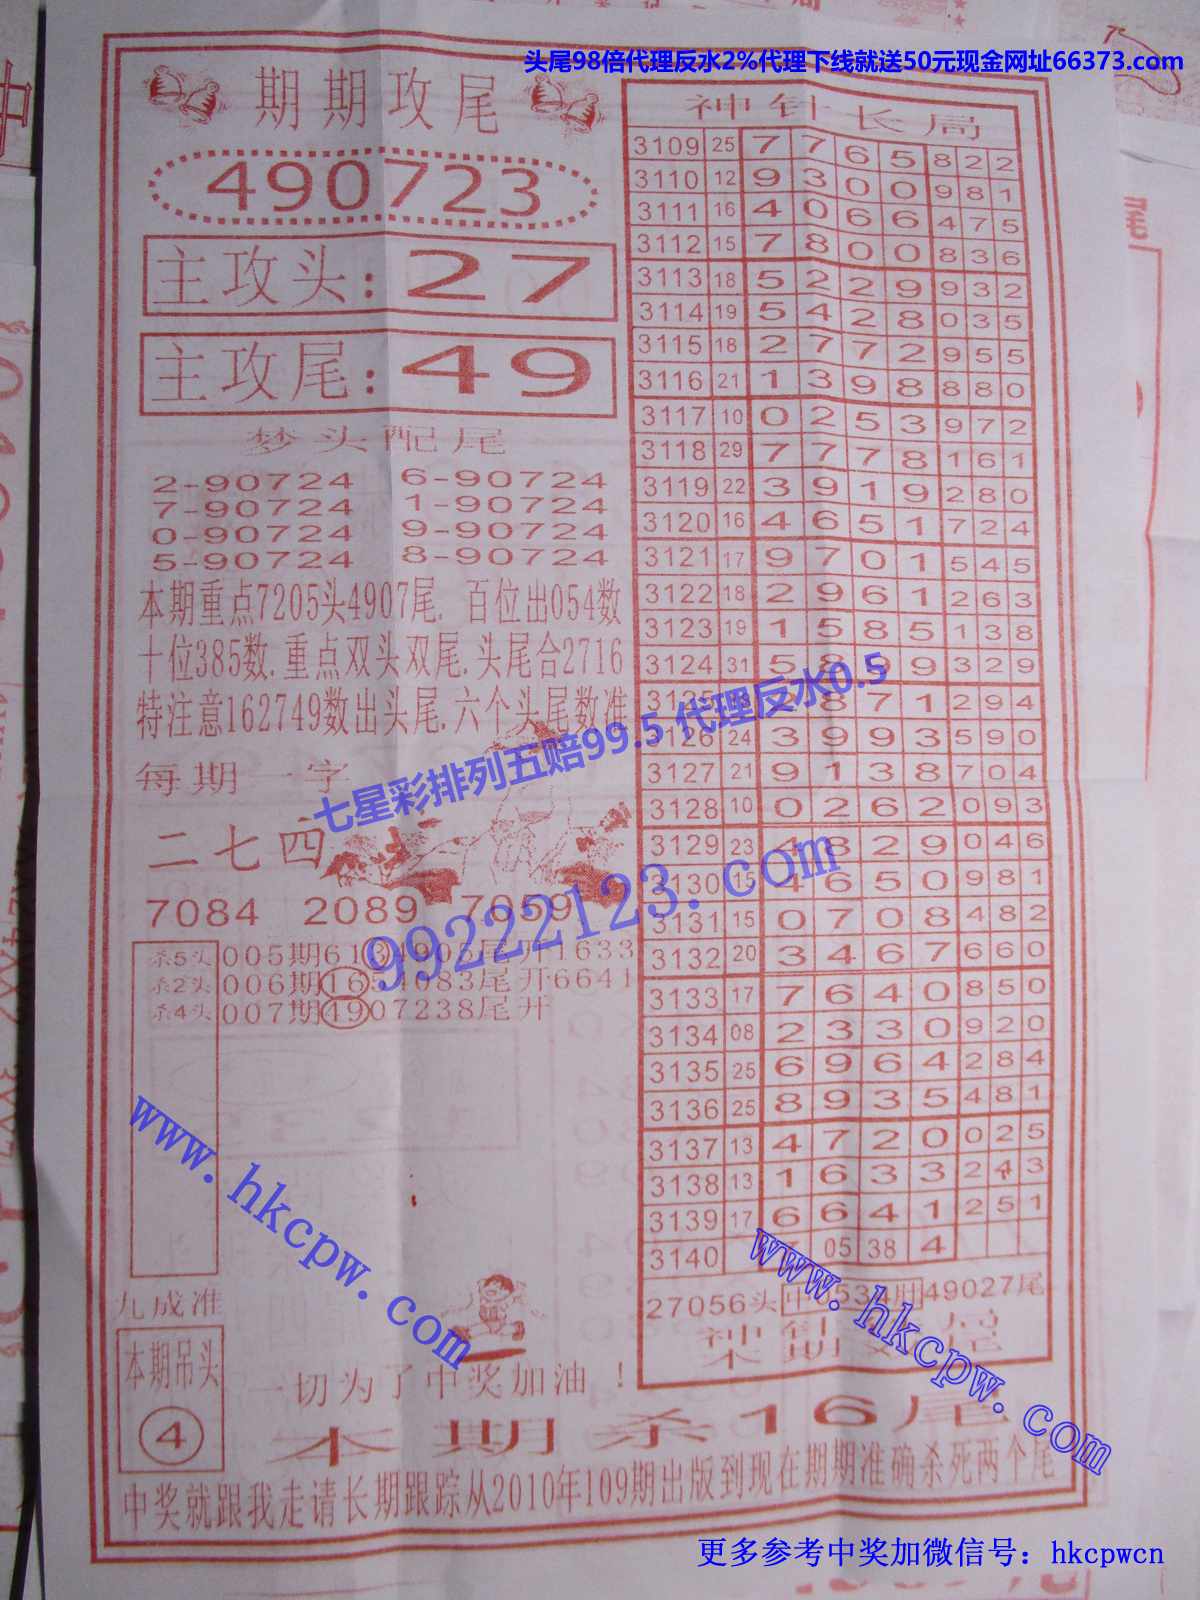 头尾98倍代理反水2%代理下线就送50元现金网址66373.com
期期攻尾
490723
主攻头:27
主攻尾:49
梦头配尾
2-90724 6-90724
7-90724 1-90724
0-90724 9-90724
5-90724 8-90724
本期重点7205头4907尾.百位出054数
十位385数.重点双头双尾.头尾合2716
特注意162749数出头尾.六个头尾数准
每期一字
二七四
7084 2089 7059
杀5头 005期6134905尾开1633
杀2头 006期1654083尾开6641
杀4头 007期4907238尾开
九成准
本期吊头
4
一切为了中奖加油!
本期杀16尾
中奖就跟我走请长期跟踪从2010年109期出版到现在期期准确杀死两个尾
神针长局
3109 25 7 7 6 5 8 2 2
3110 12 9 3 0 0 9 8 1
3111 16 4 0 6 6 4 7 5
3112 15 7 8 0 0 8 3 6
3113 18 5 2 2 9 9 3 2
3114 19 5 4 2 8 0 3 5
3115 18 2 7 7 2 9 5 5
3116 21 1 3 9 8 8 8 0
3117 10 0 2 5 3 9 7 2
3118 29 7 7 7 8 1 6 1
3119 22 3 9 1 9 2 8 0
3120 16 4 6 5 1 7 2 4
3121 17 9 7 0 1 5 4 5
3122 18 2 9 6 1 2 6 3
3123 19 1 5 8 5 1 3 8
3124 31 5 8 9 9 3 2 9
3125 18 2 8 7 1 2 9 4
3126 24 3 9 9 3 5 9 0
3127 21 9 1 3 8 7 0 4
3128 10 0 2 6 2 0 9 3
3129 23 4 8 2 9 0 4 6
3130 15 4 6 5 0 9 8 1
3131 15 0 7 0 8 4 8 2
3132 20 3 4 6 7 6 6 0
3133 17 7 6 4 0 8 5 0
3134 08 2 3 3 0 9 2 0
3135 25 6 9 6 4 2 8 4
3136 25 8 9 3 5 4 8 1
3137 13 4 7 2 0 0 2 5
3138 13 1 6 3 3 2 4 3
3139 17 6 6 4 1 2 5 1
3140 05 38 4
27056头 中 49027尾
神针
本期
七星彩排列五赔99.5 代理反水0.5
99222123.com
www.hkcpw.com
www.hkcpw.com
更多参考中奖加微信号：hkcpwcn